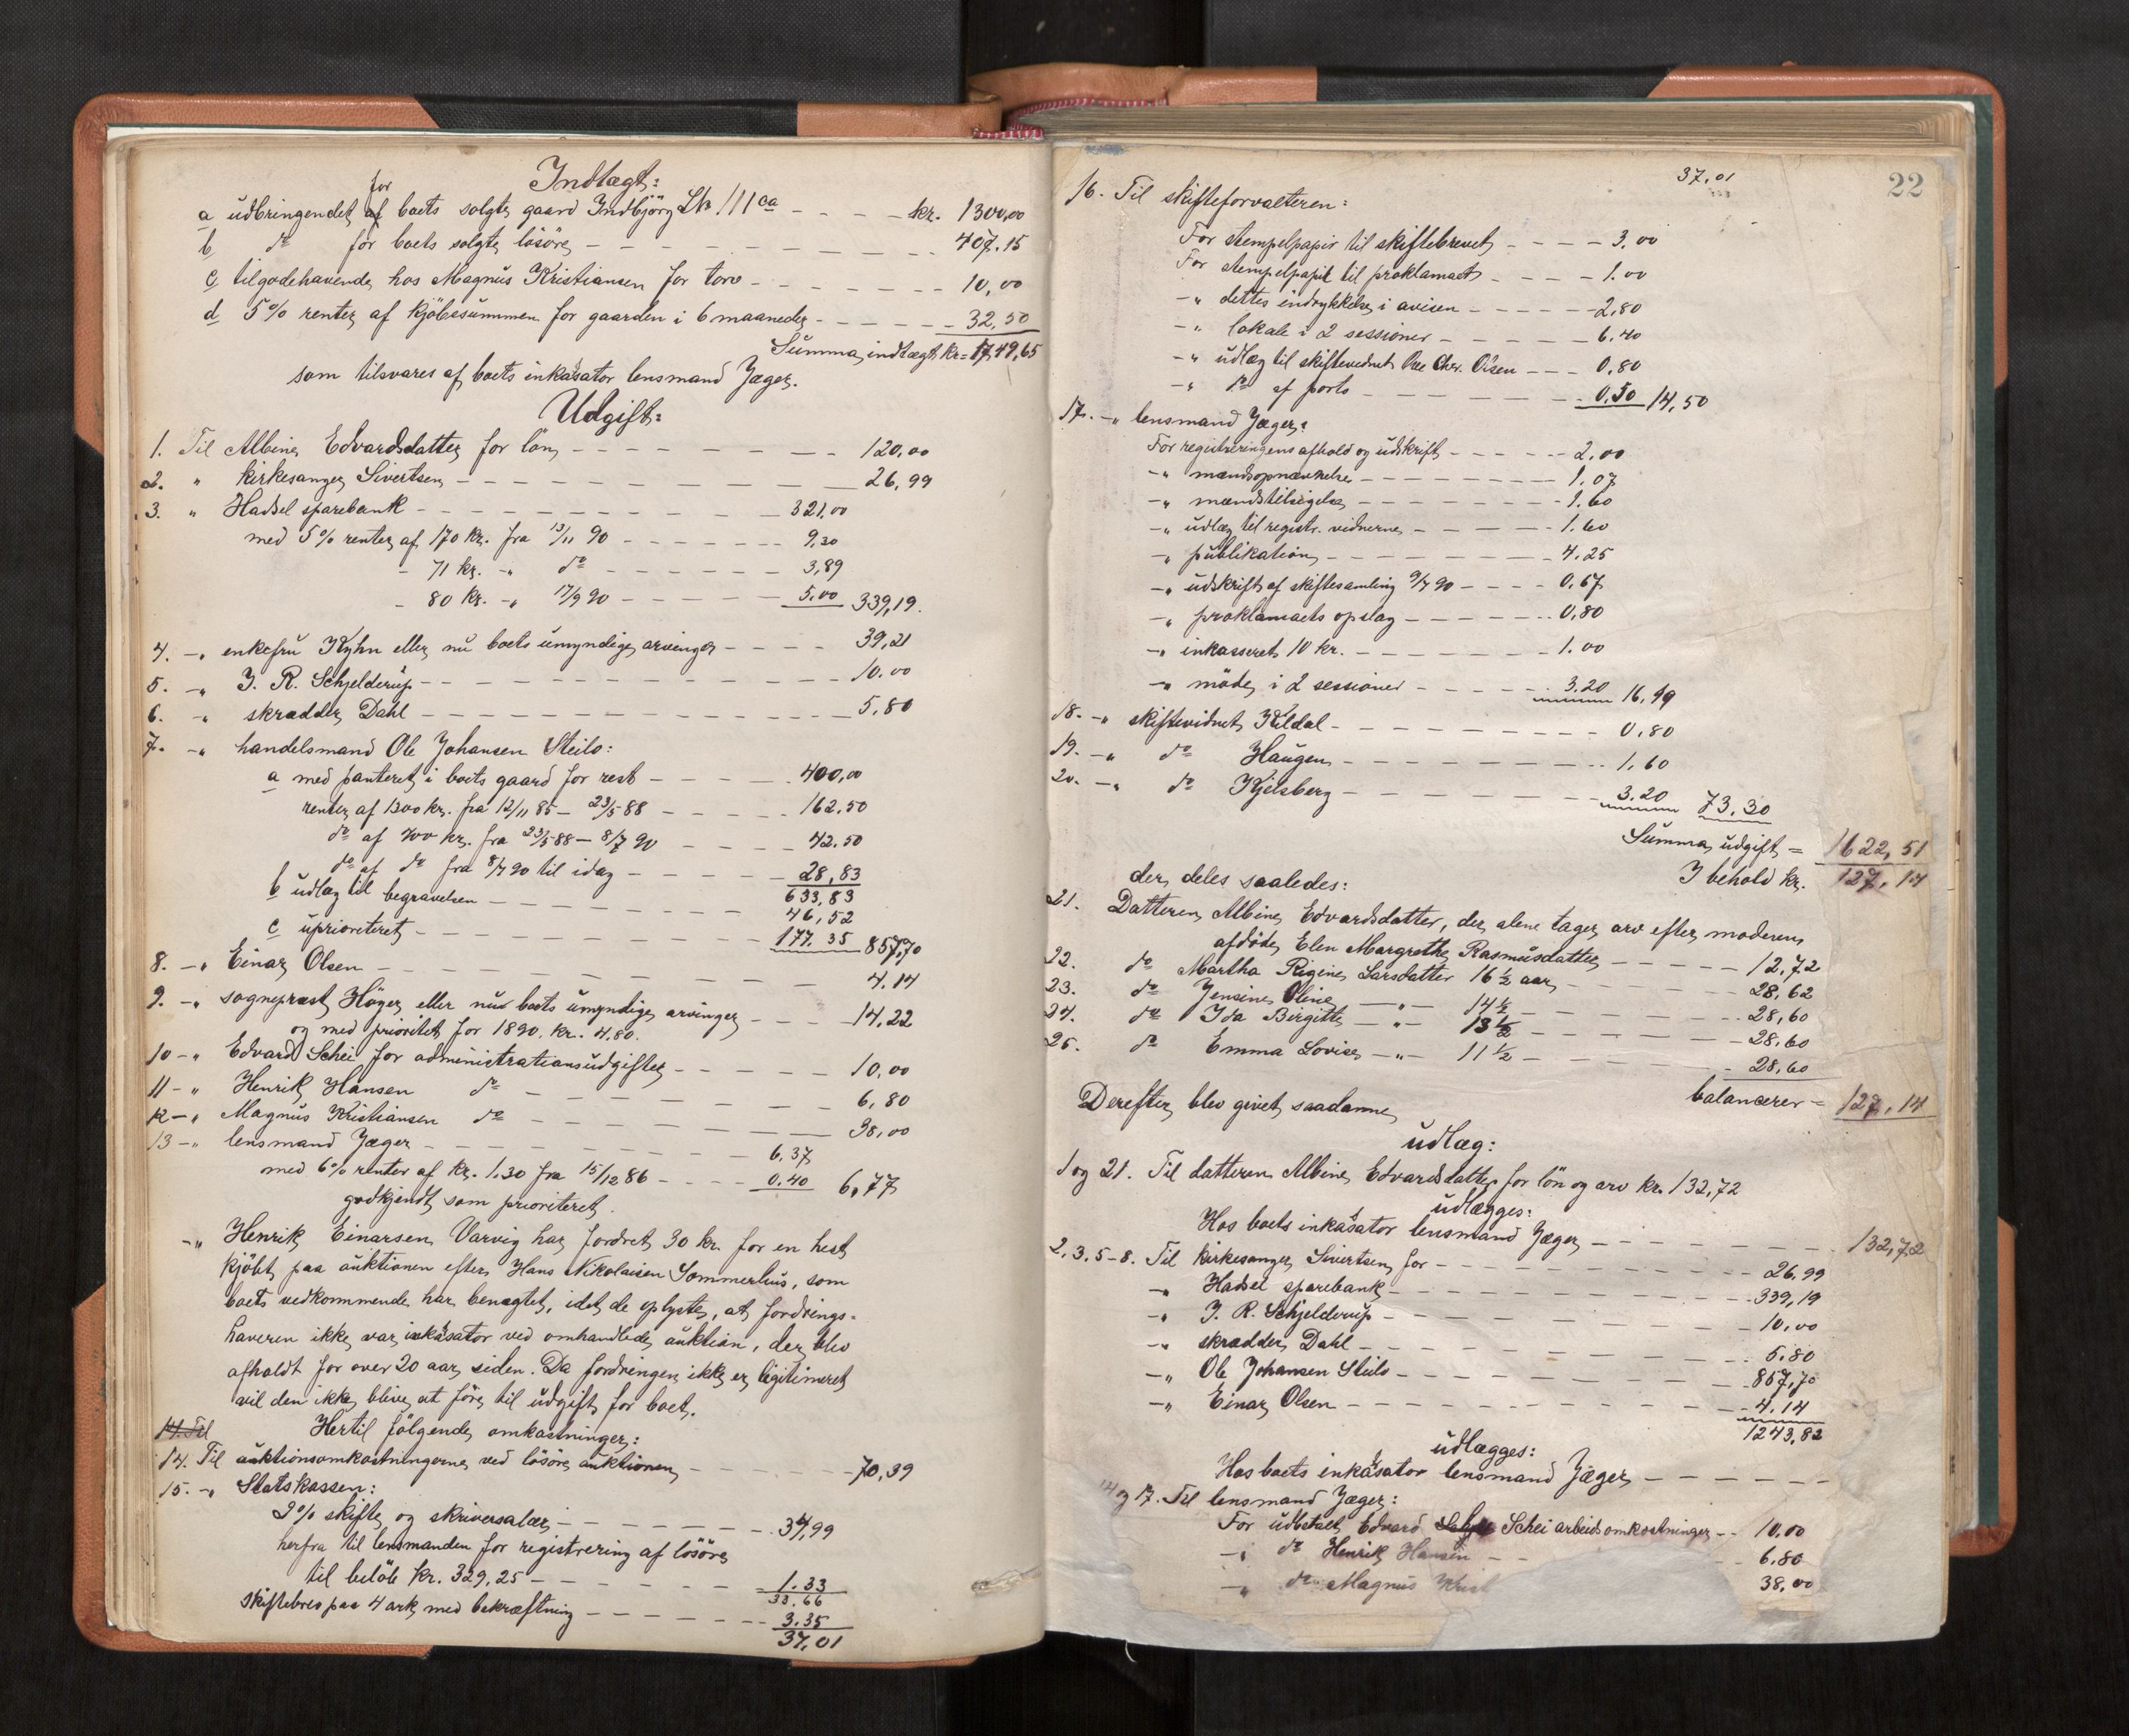 Indtægt:
for
a udbringendet af boets solgte gaard Indbjörg Lk 111 ca - - - - kr. 1300,00
b do for boets solgte lösöre - - - - - - - - 407.15
c tilgodehavende hos Magnus Kristiansen for torv - - - - - - - 10,00
d 5% renter af kjöbesummen for gaarden i 6 maaneder - - - - - 32,50
Summa indtægt kr = 1749,65
som tilsvares af boets inkassator lensmand Jæger.
Udgift:
1. Til Albine Edvardsdatter for lön - - - - - - - 120,00
2. " kirkesanger Sivertsen - - - - - - - - 26,99
3. " Hadsel sparebank - - - - - - - - 321.00
med 5% renter af 170 kr. fra 13/11 90 - - - - - - 9,30
- 71 kr. -" do - - - - - - 3,89
- 80 kr. -" 17/9 90 - - - - - 5.00 339,19.
4. -" enkefru Kyhn eller nu boets umyndige arvinger - - - - 39,21
5. -" J. R. Schjelderup - - - - - - - - - 10.00
6. -" skrædder Dahl - - - - - - - - - 5,80
7. -" handelsmand Ole Johansen Steilo:
a med panteret i boets gaard for rest - - - - 400,00
renter af 1300 kr. fra 12/11 85 - 23/5 88 - - - - - 162.50
do af 400 kr. fra 23/5 88 - 8/7 90 - - - - 42.50
do af do fra 8/7 90 til idag - - - - - 28,83
633,83
b udlæg til begravelsen - - - - - - - 46,52
c uprioriteret - - - - - - - - 177.35 857,70
8. -" Einar Olsen - - - - - - - - 4.14
9. -" sogneprest Höyer eller nu boets umyndige arvinger - - - 14,22
og med prioritet for 1890. kr. 4,80.
10 -" Edvard Schei for administrationsudgifter - - - - - 10.00
11 -" Henrik Hansen do - - - - - - - 6,80
12 -" Magnus Kristiansen do - - - - - - - 38,00
13 -" lensmand Jæger - - - - - - - 6.37
med 6% renter af kr. 1.30 fra 15/12 86 - - - - 0.40 6,77
godkjendt som prioriteret.
-" Henrik Einarsen Varvig har fordret 30 kr. for en hest
kjöbt paa auktionen efter Hans Nikolaisen Sommerhus, som
boets vedkommende har benægtet, idet de oplyste, at fordrings-
haveren ikke var inkassator ved omhandlede auktion, der blev
afholdt for over 20 aar siden. Da fordringen ikke er legitimeret
vil den ikke blive at före til udgift for boet.
14. Til
Hertil fölgende omkostninger:
14. Til auktionsomkostningerne ved lösöre auktionen - - - - - 70,39
15. -" Statskassen:
2% skifte og skriversalær - - - - - - - 34,99
herfra til lensmanden for registrering af lösöre
til belöb kr. 329,25 - - - - - - - 1.33
33.66
Skiftebrev paa 4 ark med bekræftning - - - - - - 3.35
37,01
22
37,01
16. Til skifteforvalteren:
For stempelpapir til skiftebrevet - - - - 3,00
For stempelpapir til proklamaet - - - - 1.00
-" dettes indrykkelse i avisen - - - - - 2,80
-" lokale i 2 sessioner - - - - - 6,40
-" udlæg til skiftevidnet Ole Chr. Olsen - - - 0,80
-" do af porto - - - - - - - 0.50 14,50
17. -" lensmand Jæger:
For registreringens afhold og udskrift - - - - - 2,00
-" mandsopnævnelse - - - - - - - - 1,07
-" mandstilsigelse - - - - - - - - 1.60
-" udlæg til registr. vidnerne - - - - - 1.60
-" publikation - - - - - - - - 4.25
-" udskrift af skiftesamling 9/7 90 - - - - 0,67
-" proklamaets opslag - - - - - - 0,80
-" inkasseret 10 kr. - - - - - - - 1.00
-" möde i 2 sessioner - - - - - 3.20 16,19
18. -" skiftevidnet Kildal - - - - - - - - 0,80
19. -" do Haugen - - - - - - - - 1,60
20. -" do Kjelsberg - - - - - - - 3.20 73.30
Summa udgift = 1622,51
I behold kr. 127,14
der deles saaledes:
21. Datteren Albine Edvardsdatter, der alene tager arv efter moderen
afdöde Elen Margrethe Rasmusdatter - - - - - 12,72
22. do Martha Rigine Larsdatter 16 ½ aar - - - - - - 28,62
23. do Jensine Oline -"- 14 ½ - - - - - - 28,60
24. do Ida Birgitte -"- 13 ½ - - - - - - 28.60
25. do Emma Lovise -"- 11 ½ - - - - - 28,60
balancerer = 127,14
Derefter blev givet saadanne
udlæg:
1 og 21. Til datteren Albine Edvardsdatter for lön og arv kr. 132,72
udlægges:
Hos boets inkassator lensmand Jæger - - - - - - - 132,72
2. 3. 5-8. Til kirkesanger Sivertsen for - - - - - - - - 26,99
-" Hadsel sparebank - - - - - - - - 339,19
-" J. R. Schjelderup - - - - - - - - 10,00
-" skrædder Dahl - - - - - - - - 5.80
-" Ole Johansen Steilo - - - - - - - 857,70
-" Einar Olsen - - - - - - - - 4.14
1243,82
udlægges:
Hos boets inkassator lensmand Jæger - - - - - -
14 og 17. Til lensmand Jæger:
For udbetalt Edvard Schei arbeidsomkostninger - - 10,00
-" do Henrik Hansen - - - 6.80
-" do Magnus Krist 38,00